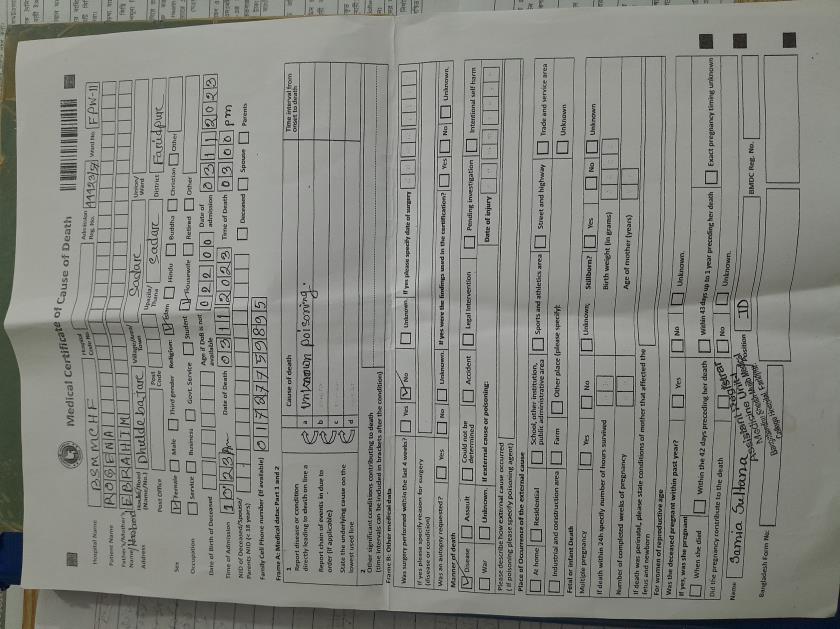 Medical Certificate of Cause of Death
Hospital Name BSMMCHF Hospital Code No Admission Reg. No. Ward No. FPW-11
Patient Name ROGENA
EBRAHIM
Address House/Road (Name/No.) Village/Area/Town Sadar Union/Ward
Post Office Post Code Upazila/Thana Sadar District Faridpur
Sex Female Male Third gender Religion: Islam Hindu Buddha Christian Other
Occupation Service Business Govt. Service Student Housewife Retired Other
Date of Birth of Deceased Age if DoB is not available 02200 Date of admission 03112023
Time of Admission Date of Death 03112023 Time of Death 0300 pm
NID of Deceased/Spouse/Parents NID (< 18 years) Deceased Spouse Parents
Family Cell Phone number (if available) 01727759895
Frame A: Medical data: Part 1 and 2
1 Report disease or condition directly leading to death on line a
Report chain of events in due to order (if applicable)
State the underlying cause on the lowest used line
Cause of death Time interval from onset to death
a Unknown poisoning.
b
c
d
2 Other significant conditions contributing to death (time intervals can be included in brackets after the condition)
Frame B: Other medical data
Was surgery performed within the last 4 weeks? Yes No Unknown. If yes please specify date of surgery
If yes please specify reasons for surgery (disease or condition)
Was an autopsy requested? Yes No Unknown. If yes were the findings used in the certification? Yes No Unknown.
Manner of death
Disease Assault Could not be determined Accident Legal Intervention Pending investigation Intentional self harm
War Unknown. If external cause or poisoning: Date of injury
Please describe how external cause occurred (If poisoning please specify poisoning agent)
Place of Occurrence of the external cause
At home Residential School, other institution, public administrative area Sports and athletics area Street and highway Trade and service area
Industrial and construction area Farm Other place (please specify): Unknown
Fetal or infant Death
Multiple pregnancy Yes No Unknown; Stillborn? Yes No Unknown
If death within 24h specify number of hours survived Birth weight (in grams)
Number of completed weeks of pregnancy Age of mother (years)
If death was perinatal, please state conditions of mother that affected the fetus and newborn
For women of reproductive age
Was the deceased pregnant within past year? Yes No Unknown.
If yes, was she pregnant
When she died Within the 42 days preceding her death Within 43 days up to 1 year preceding her death Exact pregnancy timing unknown
Did the pregnancy contribute to the death No Unknown.
Name Samia Sultana Position BMDC Reg. No.
Bangladesh Form No: